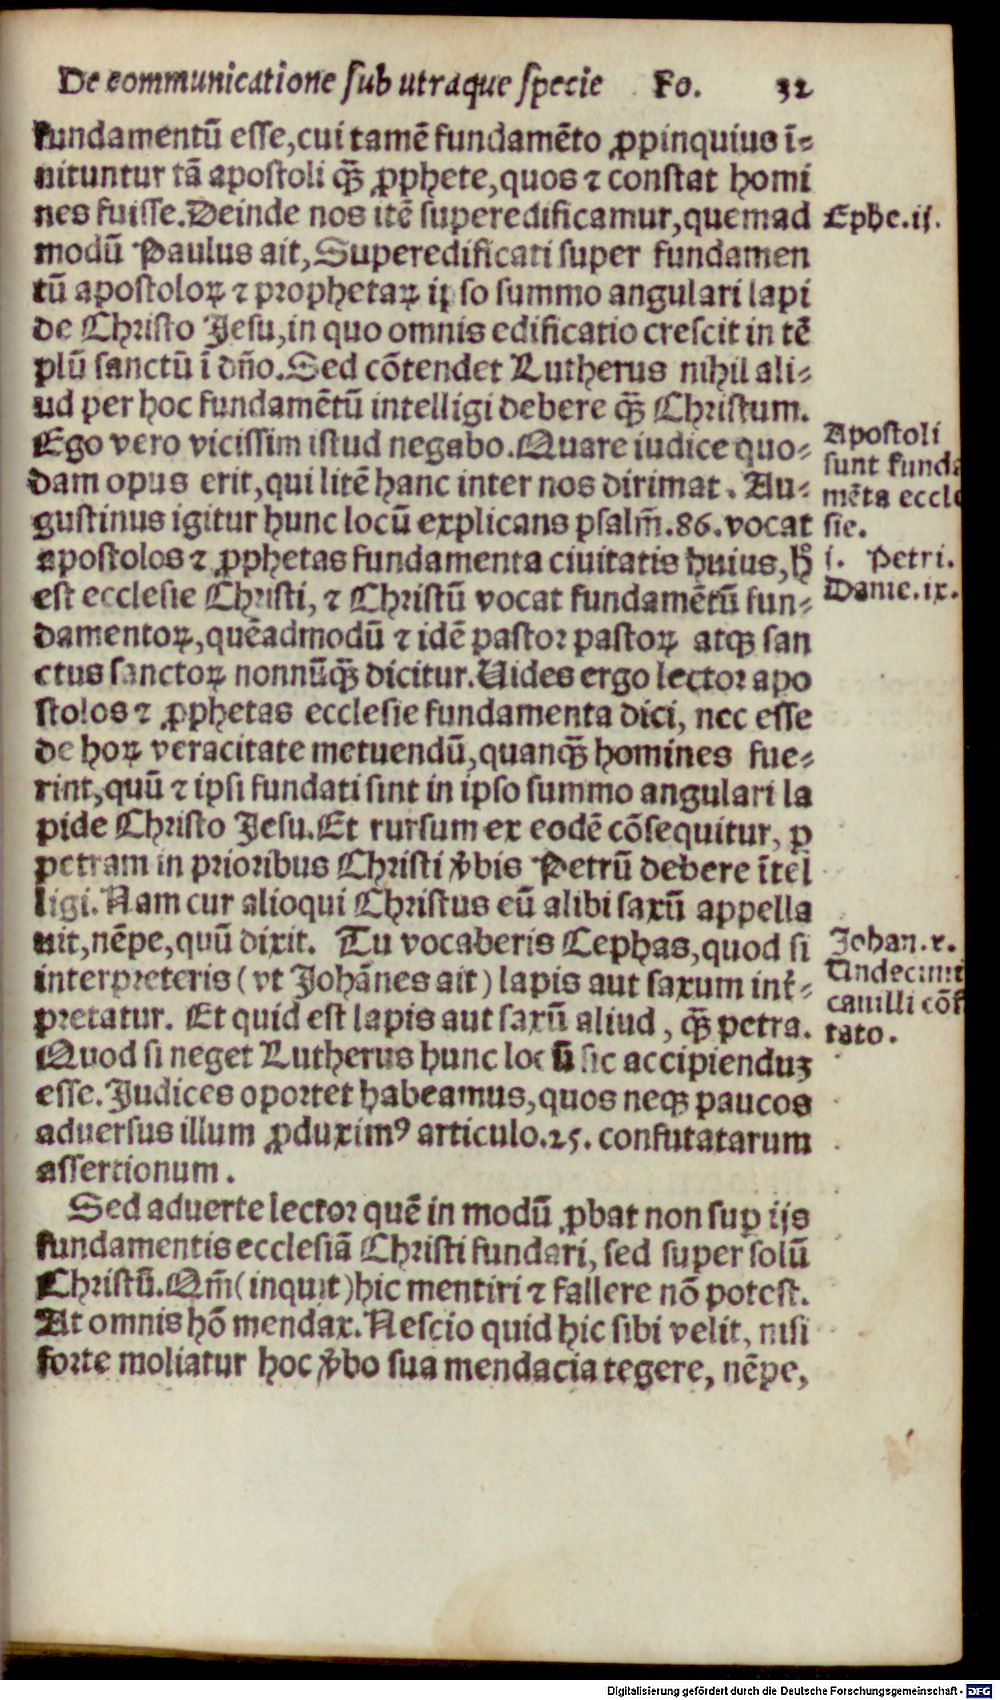 De communicatione sub utraque specie Fo. 32
fundamentū esse, cui tamē fundamēto ꝓpinquius ī⸗
nituntur tā apostoli qꝫ̄ ꝓphete, quos ⁊ constat homi
nes fuisse. Deinde nos itē superedificamur, quemad
modū Paulus ait, Superedificati super fundamen
tū apostoloꝝ ⁊ prophetaꝝ ipso summo angulari lapi
de Christo Jesu, in quo omnis edificatio crescit in tē
plū sanctū ī dño. Sed cōtendet Lutherus nihil ali⸗
ud per hoc fundamētū intelligi debere qꝫ̄ Christum.
Ego vero vicissim istud negabo. Quare iudice quo⸗
dam opus erit, qui litē hanc inter nos dirimat. Au⸗
gustinus igitur hunc locū explicans psalm̄. 86. vocat
apostolos ⁊ ꝓphetas fundamenta ciuitatis huius, hͦ
est ecclesie Christi, ⁊ Christū vocat fundamētū fun⸗
damentoꝝ, quēadmodū ⁊ idē pastor pastoꝝ atqꝫ san
ctus sanctoꝝ nonnūqꝫ̄ dicitur. Uides ergo lector apo
stolos ⁊ ꝓphetas ecclesie fundamenta dici, nec esse
de hoꝝ veracitate metuendū, quanqꝫ̄ homines fue⸗
rint, quū ⁊ ipsi fundati sint in ipso summo angulari la
pide Christo Jesu. Et rursum ex eodē cōsequitur, ꝑ
petram in prioribus Christi v̾bis Petrū debere ītel
ligi. Nam cur alioqui Christus eū alibi saxū appella
uit, nēpe, quū dixit. Tu vocaberis Cephas, quod si
interpreteris (vt Johānes ait) lapis aut saxum int̾⸗
pretatur. Et quid est lapis aut saxū aliud, qꝫ̄ petra.
Quod si neget Lutherus hunc locū sic accipienduꝫ
esse. Judices oportet habeamus, quos neqꝫ paucos
aduersus illum ꝓduximꝰ articulo. 25. confutatarum
assertionum.
Sed aduerte lector quē in modū ꝓbat non suꝑ ijs
fundamentis ecclesiā Christi fundari, sed super solū
Christū. Qm̄ (inquit) hic mentiri ⁊ fallere nō potest.
At omnis hō mendax. Nescio quid hic sibi velit, nisi
forte moliatur hoc v̾bo sua mendacia tegere, nēpe,
Ephe. ij.
Apostoli
sunt funda
mēta eccle
sie.
j. Petri.
Danie. ix.
Johan. x.
Undecimi
cauilli cōf
tato.
Digitalisierung gefördert durch die Deutsche Forschungsgemeinschaft - DFG